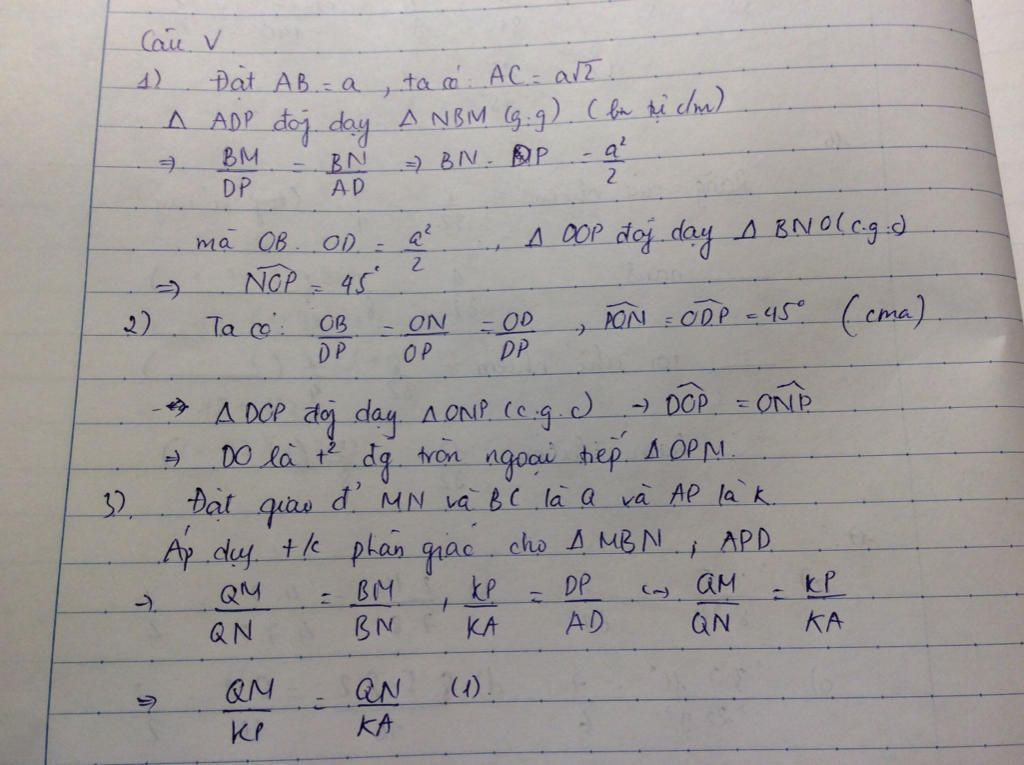 Câu V
1) Đặt AB = a, ta có: AC = a√2.
Δ ADP đồg dạg Δ NBM (g.g) (bn tự c/m)
⇒ BM/DP = BN/AD ⇒ BN . DP = a²/2
mà OB. OD = a²/2, Δ DOP đồg dạg Δ BNO (c.g.c)
⇒ NOP = 45°
2) Ta có: OB/DP = ON/OP = OD/DP, PON = ODP = 45° (cma)
⇔ Δ DOP đồg dạg Δ ONP (c.g.c) → DOP = ONP
⇒ DO là t² đg tròn ngoại tiếp Δ OPN.
3) Đặt giao đ' MN và BC là Q và AP là K.
Áp dụg t/c phân giác cho Δ MBN, APD
→ QM/QN = BM/BN, KP/KA = DP/AD ↪ QM/QN = KP/KA
⇒ QM/KP = QN/KA (1).